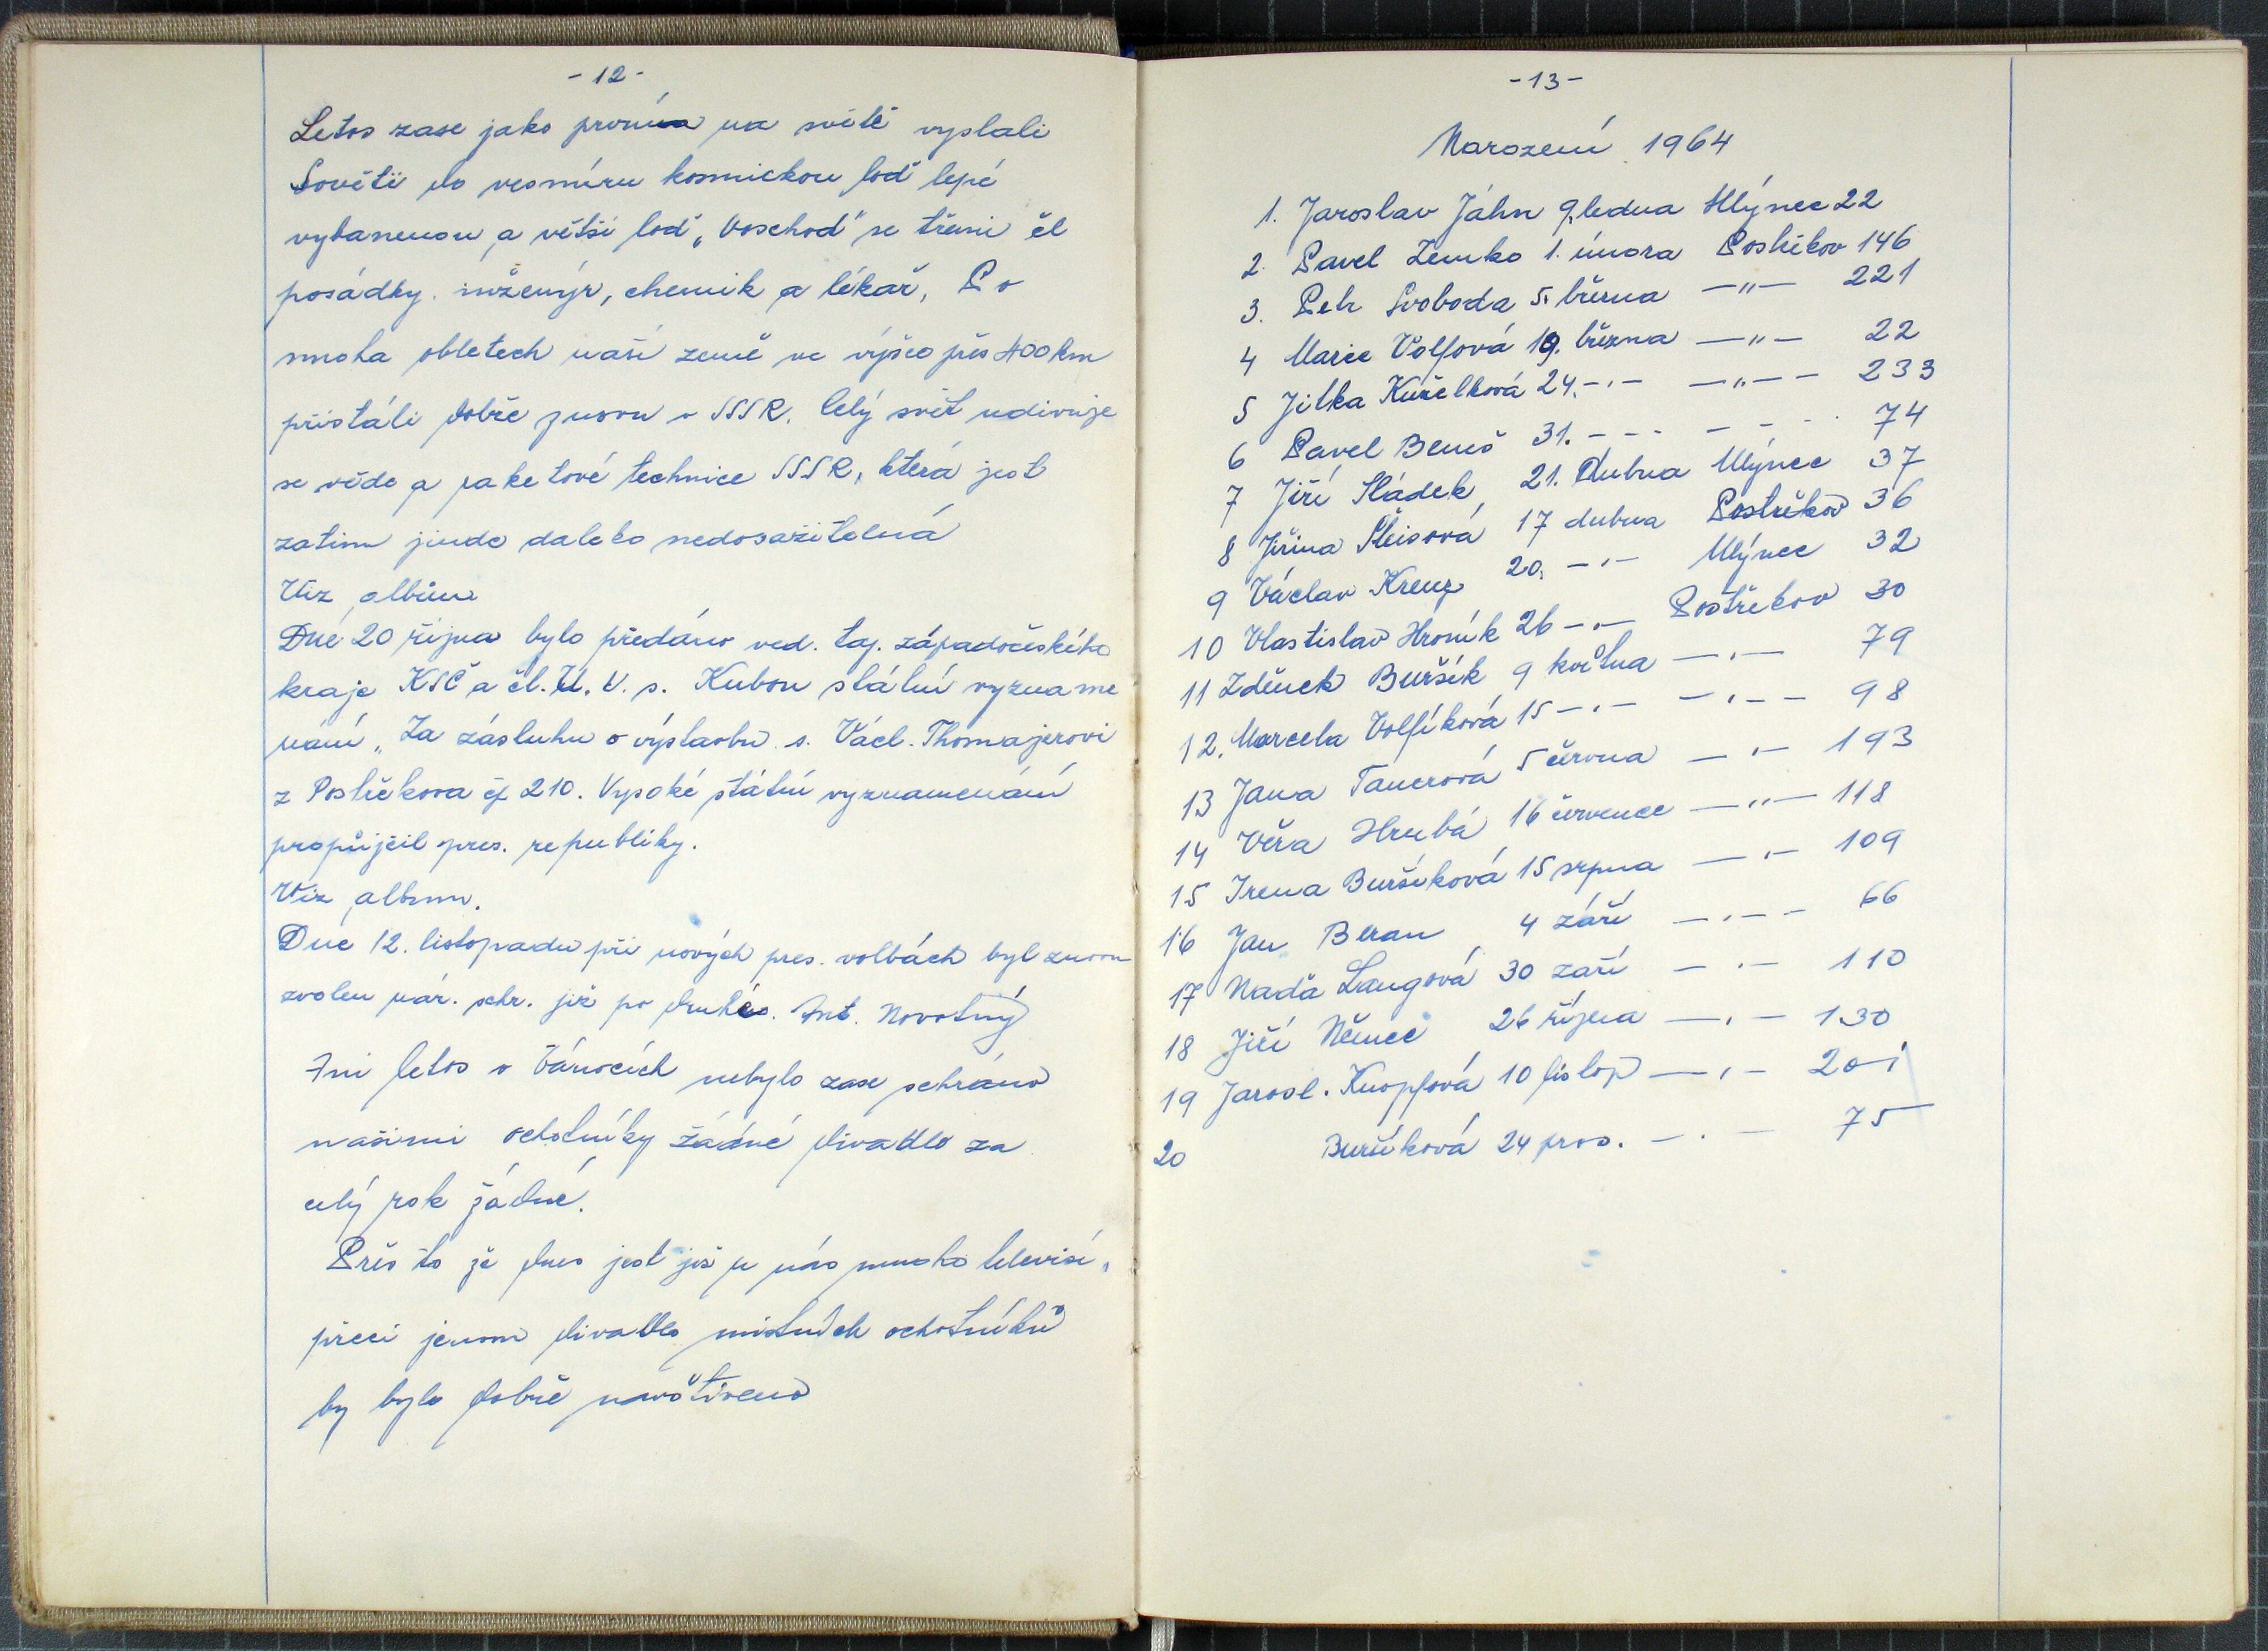 - 12 -
Letos zase jako první na světě vyslali
Sověti do vesmíru kosmickou loď lepé
vybavenou a větši loď „Voschod" se třemi čl
posádky. inženýr, chemik a lékař, Po
mnoha obletech naší země ve výšce přes 400 km
přistáli dobře znovu v SSSR. Celý svět udivuje
se vědě a raketové technice SSSR, která jest
zatim jinde daleko nedosažitelná
Viz album
Dne 20 října bylo předáno ved. taj. západočeského
kraje KSČ a čl. Ú. V. s. Kubou státní vyzname
nání „Za zásluhu o výstavbu s. Václ. Thomajerovi
z Postřekova čp 210. Vysoké státní vyznamenání
propůjčil pres. republiky.
Viz album.
Dne 12. listopadu při nových pres. volbách byl znovu
zvolen nár. shr. již po druhés. Ant. Novotný
Ani letos o Vánocích nebylo zase sehráno
našimi ochotníky žádné divadlo za
celý rok žádné.
Přes to že dnes jest již u nás mnoho televisí,
přeci jenom divadlo místních ochotníků
by bylo dobře navštíveno
- 13 -
Narození 1964
1. Jaroslav Jáhn 9. ledna Mlýnec 22
2. Pavel Zemko 1. února Postřekov 146
3. Petr Svoboda 5. března —„— 221
4 Marie Volfová 19. března —„— 22
5 Jitka Kuželková 24. -„- —„— 233
6 Pavel Beneš 31. - - - - - - 74
7 Jiří Sládek, 21. Dubna Mlýnec 37
8 Jiřina Šleisová 17 dubna Postřekov 36
9 Václav Kreuz 20. -„- Mlýnec 32
10 Vlastislav Hroník 26 -„- Postřekov 30
11 Zděnek Buršík 9 května —„— 79
12. Marcela Volfíková 15 -„- -„- 98
13 Jana Tauerová 5 června —„— 193
14 Věra Hrubá 16 července —„— 118
15 Irena Buršíková 15 srpna —„— 109
16 Jan Beran 4 září —„— 66
17 Naďa Langová 30 září —„— 110
18 Jiří Němec 26 října —„— 130
19 Jarosl. Knopfová 10 listop —„— 201
20 Buršíková 24 pros. —„— 75